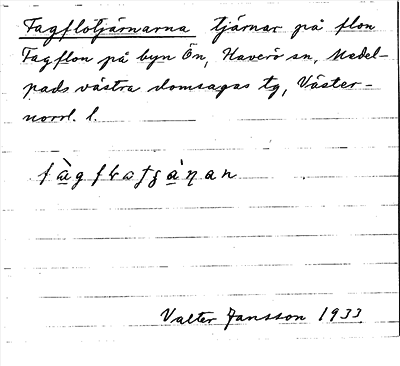 Fagflotjärnarna tjärnar på flon
Fagflon på byn Ön, Haverö sn, Medel-
pads västra domsagas tg, Väster-
norrl. l.
Valter Jansson 1933